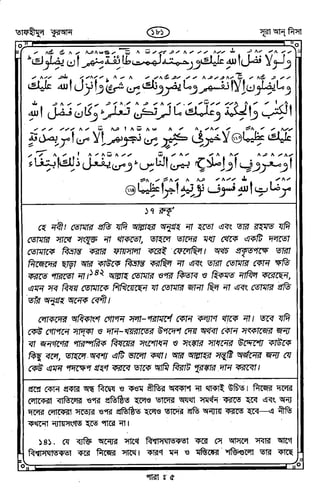 তাফহীমুল কুরআন
১৮১
সূরা আন্ নিসা
وَلَوْلَا فَضْلُ اللَّهِ عَلَيْكَ وَرَحْمَتُهُ لَهَمَّتْ طَائِفَةٌ مِنْهُمْ أَنْ يُضِلُّوكَ
وَمَا يُضِلُّونَ إِلَّا أَنْفُسَهُمْ وَمَا يَضُرُّونَكَ مِنْ شَيْءٍ وَأَنْزَلَ اللَّهُ عَلَيْكَ
الْكِتٰبَ وَالْحِكْمَةَ وَعَلَّمَكَ مَا لَمْ تَكُنْ تَعْلَمُ وَكَانَ فَضْلُ اللَّهِ
عَلَيْكَ عَظِيمًا ﴿١١٣﴾ لَا خَيْرَ فِي كَثِيرٍ مِنْ نَجْوٰىهُمْ إِلَّا مَنْ أَمَرَ بِصَدَقَةٍ
أَوْ مَعْرُوفٍ أَوْ إِصْلَاحٍ بَيْنَ النَّاسِ وَمَنْ يَفْعَلْ ذٰلِكَ ابْتِغَاءَ
مَرْضَاتِ اللَّهِ فَسَوْفَ نُؤْتِيهِ أَجْرًا عَظِيمًا ﴿١١٤﴾
১৭ রুকূ'
হে নবী! তোমার প্রতি যদি আল্লাহর অনুগ্রহ না হতো এবং তার রহমত যদি
তোমার সাথে সংযুক্ত না থাকতো, তাহলে তাদের মধ্য থেকে একটি দলতো
তোমাকে বিভ্রান্ত করার ফায়সালা করেই ফেলেছিল। অথচ প্রকৃতপক্ষে তারা
নিজেদের ছাড়া আর কাউকে বিভ্রান্ত করছিল না এবং তারা তোমার কোন ক্ষতি
করতে পারতো না।১৪২ আল্লাহ তোমার ওপর কিতাব ও হিকমত নাযিল করেছেন,
এমন সব বিষয় তোমাকে শিখিয়েছেন যা তোমার জানা ছিল না এবং তোমার প্রতি
তাঁর অনুগ্রহ অনেক বেশী।
লোকদের অধিকাংশ গোপন সলা-পরামর্শে কোন কল্যাণ থাকে না। তবে যদি
কেউ গোপনে সাদ্কা ও দান-খয়রাতের উপদেশ দেয় অথবা কোন সৎকাজের জন্য
বা জনগণের পারস্পরিক বিষয়ের সংশোধন ও সংস্কার সাধনের উদ্দেশ্যে কাউকে
কিছু বলে, তাহলে অবশ্য এটি ভালো কথা। আর আল্লাহর সন্তুষ্টি অর্জনের জন্য যে
কেউ এমন পদক্ষেপ গ্রহণ করবে তাকে আমি বিরাট পুরস্কার দান করবো।
প্রশ্নে কোন প্রকার অন্ধ বিদ্বেষ ও কওম প্রীতির অবকাশ না থাকাই উচিত। নিজের দলের
লোকেরা বাতিলের ওপর প্রতিষ্ঠিত হলেও তাদের অযথা সমর্থন করতে হবে এবং অন্য
দলের লোকেরা সত্যের ওপর প্রতিষ্ঠিত হলেও তাদের প্রতি অন্যায় করতে হবে—এ নীতি
কখনো ন্যায়সংগত হতে পারে না।
১৪১. যে ব্যক্তি অন্যের সাথে বিশ্বাসঘাতকতা করে সে আসলে সবার আগে
বিশ্বাসঘাতকতা করে নিজের সাথে। কারণ মন ও মস্তিষ্কের শক্তিগুলো তার কাছে
পারা ঃ ৫